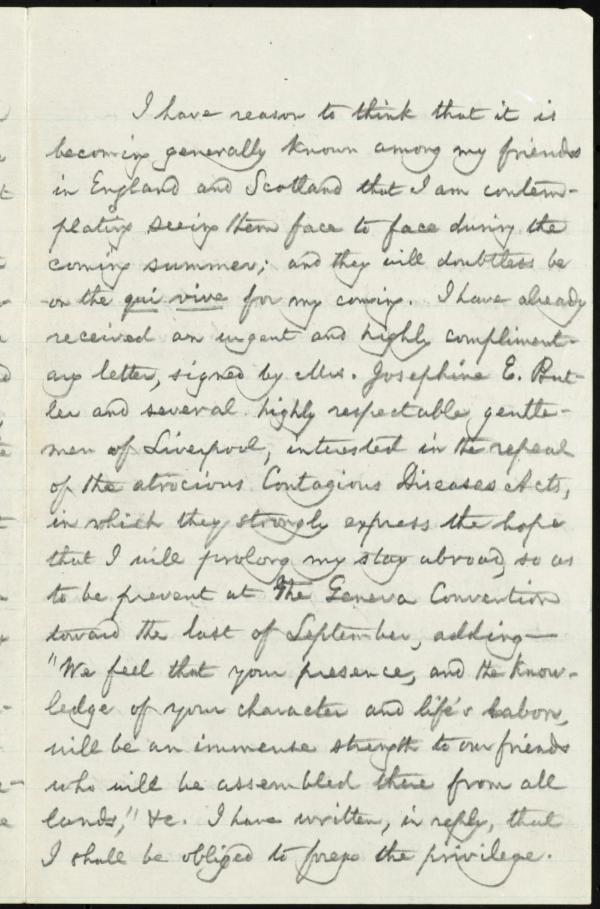 I have reason to think that it is
becoming generally known among my friends
in England and Scotland that I am contem-
plating seeing them face to face during the
coming summer; and they will doubtless be
on the qui vive for my coming. I have already
received an urgent and highly compliment-
ary letter, signed by Mrs. Josephine E. But-
ler and several highly respectable gentle-
men of Liverpool, interested in the repeal
of the atrocious Contagious Diseases Acts,
in which they strongly express the hope
that I will prolong my stay abroad, so as
to be present at The Geneva Convention
toward the last of September, adding—
"We feel that your presence, and the know-
ledge of your character and life's labor,
will be an immense strength to our friends
who will be assembled there from all
lands," &c. I have written, in reply, that
I shall be obliged to forego the privilege.